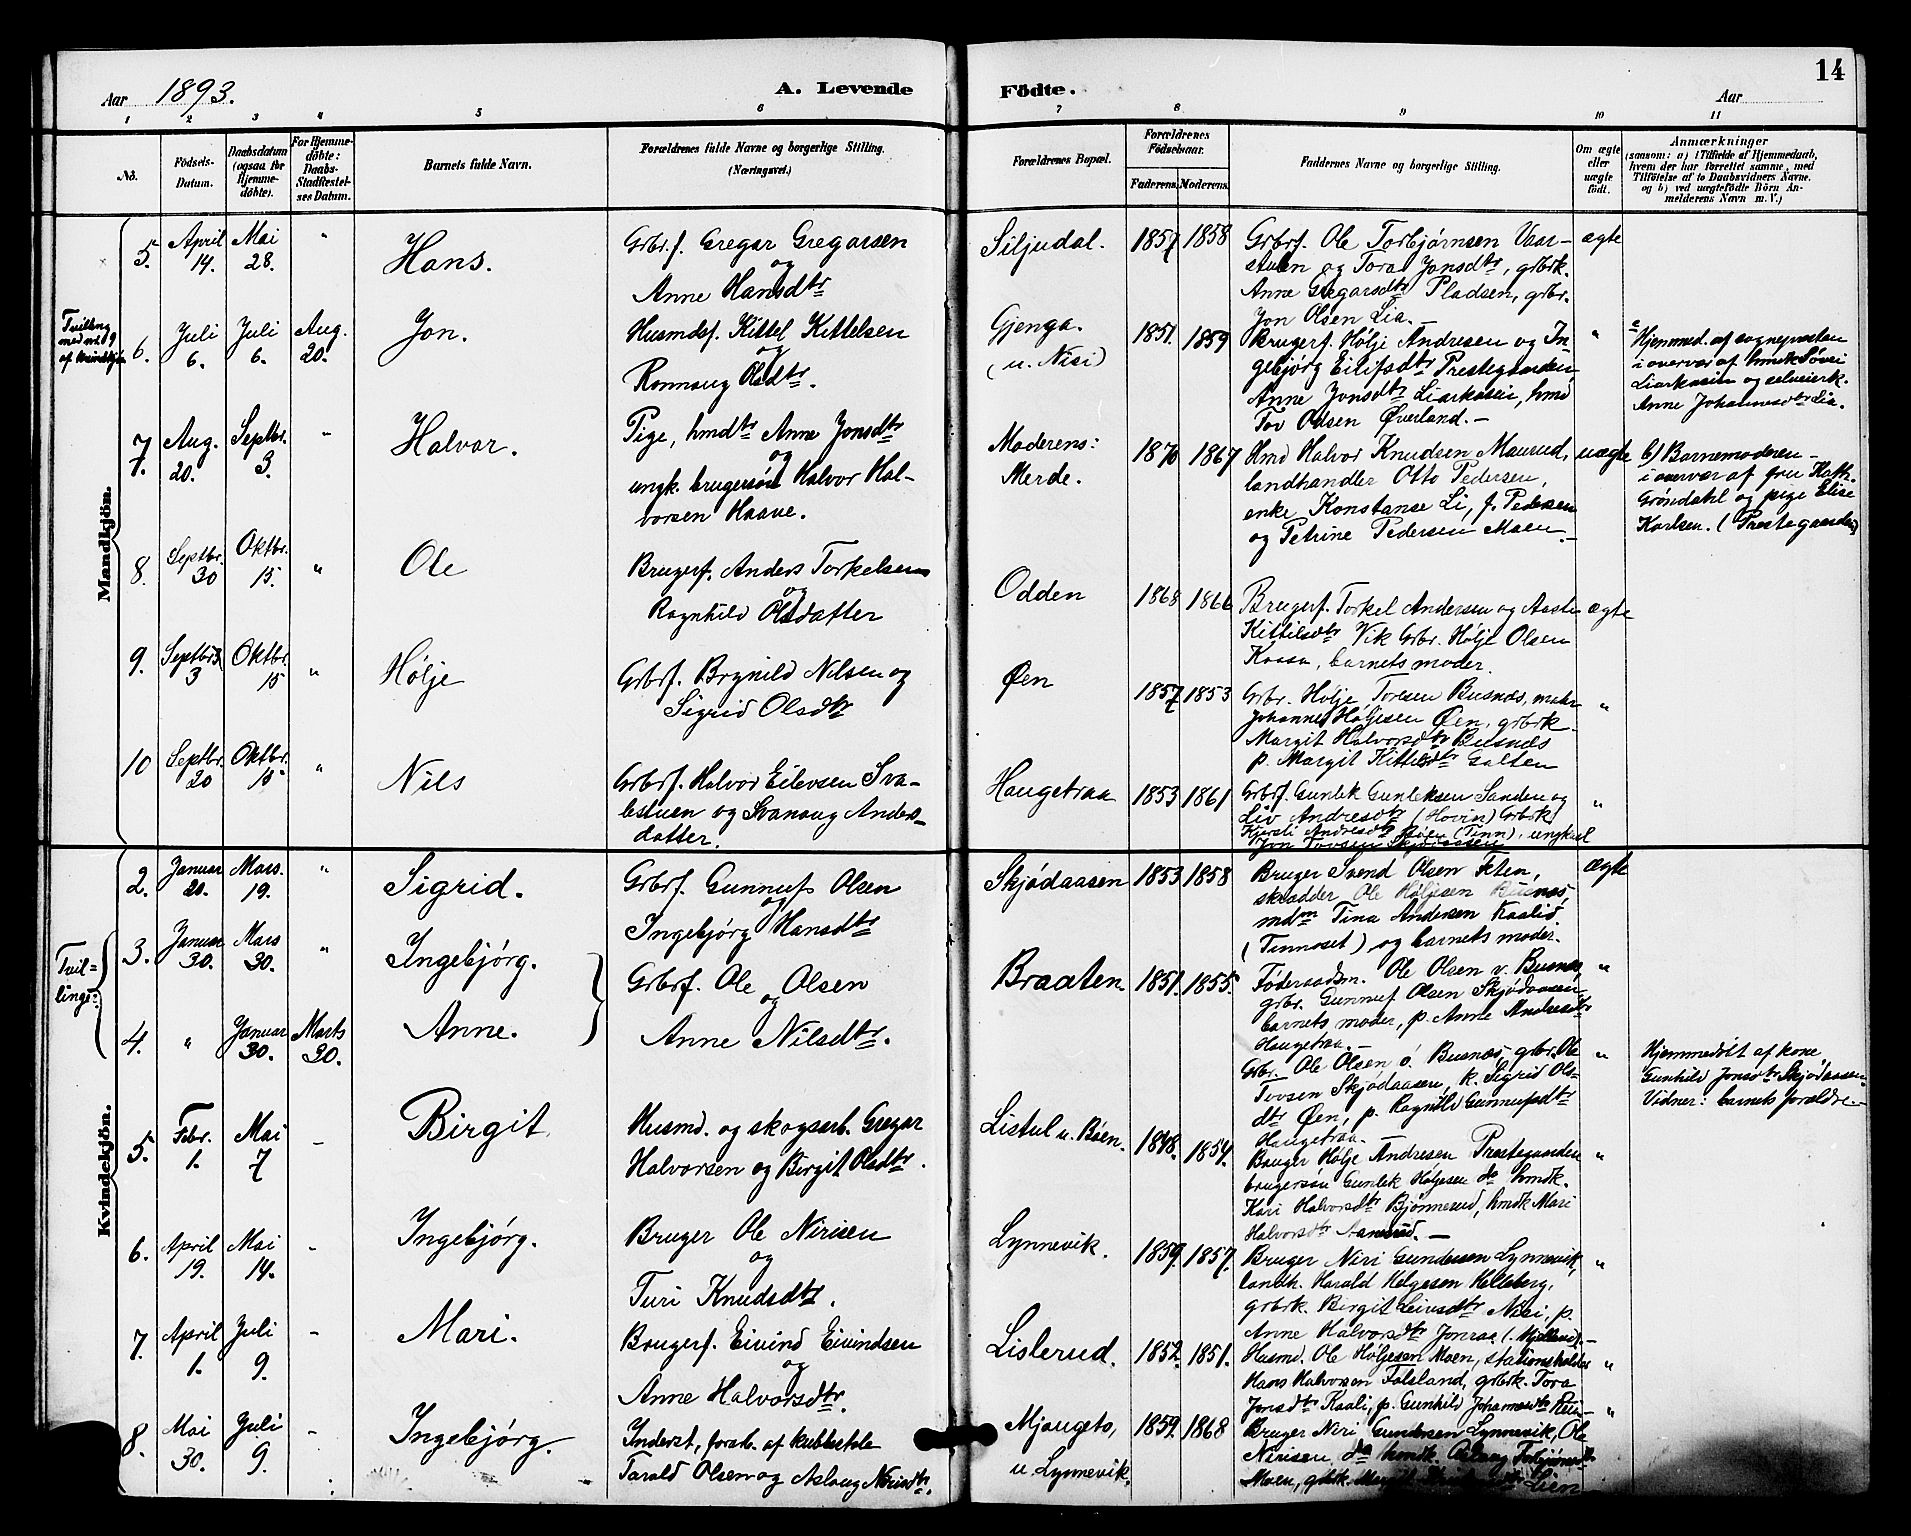 14
Aar 1893.
A. Levende Födte.
Aar
1 2 3 4 5 6 7 8 9 10 11
No.
Födsels-Datum.
Daabsdatum (ogsaa for Hjemme-döbte).
For Hjemme-döbte: Daabs-Stadfæstel-ses Datum.
Barnets fulde Navn.
Forældrenes fulde Navne og borgerlige Stilling.
(Næringsvei.)
Forældrenes Bopæl.
Forældrenes Födselsaar.
Faderens. Moderens.
Faddernes Navne og borgerlige Stilling.
Om ægte eller uægte födt.
Anmærkninger
(saasom: a) i Tilfælde af Hjemmedaab,
hvem der har forrettet samme, med
Tilföielse af to Daabsvidners Navne.
og b) ved uægtefödte Börn An-
melderens Navn m. V.)
Mandkjön.
5. April 14. Mai 28. " Hans.
Grbrf. Gregar Gregarsen
og
Anne Hansdtr
Siljudal. 1857 1858
Grbrf. Ole Torbjørnsen Vaar-
stulen og Tora Jonsdtr, grbrk.
Anne Gregarsdtr Pladsen, grbr.
Jon Olsen Lia. -
ægte
Tvilling
med nr. 9
af kvindkjön
6. Juli 6. Juli 6. Aug. 20. Jon.
Husmdsf. Kittel Kittelsen
og
Ronnaug Olsdtr.
Gjenga.
(u. Nisi)
1851. 1859
Brugerf. Hølje Andresen og In-
gebjörg Eilifsdtr Prestegaarden,
Anne Jonsdtr Liarkasin, hmd
Tov Olsen Øverland. -
"
Hjemmed. af sognepresten
i overvær af hmdk
Liarkasin og selveierk.
Anne Johannesdtr Lia.
7. Aug. 20. Septbr. 3. " Halvor.
Pige, hmdtr Anne Jonsdtr
og
ungk. brugersön Halvor Hal-
vorsen Haave.
Moderens:
Merde.
1870 1867
Hmd Halvor Knudsen Maurud,
landhandler Otto Pedersen,
enke Konstanse Li, f. Pedersen
og Petrine Pedersen Moen. -
uægte
b) Barnemoderen -
i overvær af fru Kath.
Gröndahl og pige Elise
Karlsen. (Prestegaarden)
8. Septbr. 30 Oktbr. 15. " Ole
Brugerf. Anders Torkelsen
og
Ragnhild Olsdatter
Odden 1868 1866
Brugerf. Torkel Andersen og Aaste
Kittilsdtr Vik Grbr. Hölje Olsen
Kaasa, barnets moder.
ægte
9. Septbr 3 Oktbr. 15 " Hölje
Grbrf. Brynild Nilsen og
Sigrid Olsdtr
Øen 1857 1853
Grbr. Hölje Toresen Busnæs,
Johannes Höljesen Øen, grbrk
Margit Halvorsdtr Busnæs
p. Margit Kittilsdtr Galten
"
10 Septbr. 20 Oktbr. 15 " Nils
Grbrf. Halvor Eilevsen Sva-
lestuen og Svanaug Anders-
datter.
Haugetraa 1853 1861
Grbrf. Gunlek Gunleksen Sanden og
Liv Andresdtr (Hovin) Grbrk
Kjersti Andresdtr Böen (Tinn), ungkarl
Jon Tovsen Skjödaasen
"
Kvindekjön.
2. Januar 20. Mars. 19. " Sigrid.
Grbrf. Gunnuf Olsen
og
Ingebjörg Hansdtr
Skjödaasen 1853 1858
Bruger Svend Olsen Feten,
skrædder Ole Höljesen Busnæs,
mdm Tina Andersen Kaalid.
(Tinnoset), og barnets moder.
ægte
Tvil-
linge:
3. Januar 30. Mars 30. " Ingebjörg.
4. " Januar 30. Marts 30. Anne.
Grbrf. Ole Olsen
og
Anne Nilsdtr.
Braaten. 1851. 1855.
Föderaadsm. Ole Olsen v. Busnæs,
grbr. Gunnuf Olsen Skjödaasen,
barnets moder, p. Anne Andresdtr
Haugetraa. -
"
Grbr. Ole Olsen ö. Busnæs, grbr. Ole
Tovsen Skjödaasen, k. Sigrid Ols-
dtr Øen, p. Ragnild Gunnufsdtr
Haugetraa. -
"
Hjemmedöbt af kone
Gunhild Jonsdtr Skjödaasen
Vidner: barnets forældre. -
5. Febr. 1. Mai 7 - Birgit
Husmd. og skogsarb. Gregar
Halvorsen og Birgit Olsdtr.
Listul u. Böen. 1848. 1854.
Bruger Hölje Andresen Prestegaarden
brugersön Gunlek Höljesen do hmdk.
Kari Halvorsdtr Bjönnerud, hmdk Mari
Halvorsdtr Aamerud. -
"
6. April 19. Mai 14. - Ingebjörg.
Bruger Ole Nirisen
og
Turi Knudsdtr.
Lynnevik. 1859. 1857.
Bruger Niri Gundersen Lynnevik,
landh. Harald Helgesen Helleberg,
grbrk. Birgit Leivsdtr Nisi, p.
Anne Halvorsdtr Jonraa (. Mjelland). -
"
7. April 1. Juli 9. - Mari.
Brugerf. Eivind Eivindsen
og
Anne Halvorsdtr.
Lislerud. 1852. 1851.
Husmd. Ole Höljesen Moen, stationsholder
Hans Halvorsen Folsland, grbrk. Tora
Jonsdtr Kaali, p. Gunhild Johannesdtr
"
8. Mai 30. Juli 9. - Ingebjörg.
Inderst, forarb. af kubbstole
Tarald Olsen og Aslaug Nirisdtr.
Mjaugets,
u. Lynnevik.
1859. 1868
Bruger Niri Gundersen Lynnevik, Ole
Nirisen, do hmdk. Aslaug Torbjörnsdtr
Moen, grbrk. Lien
"